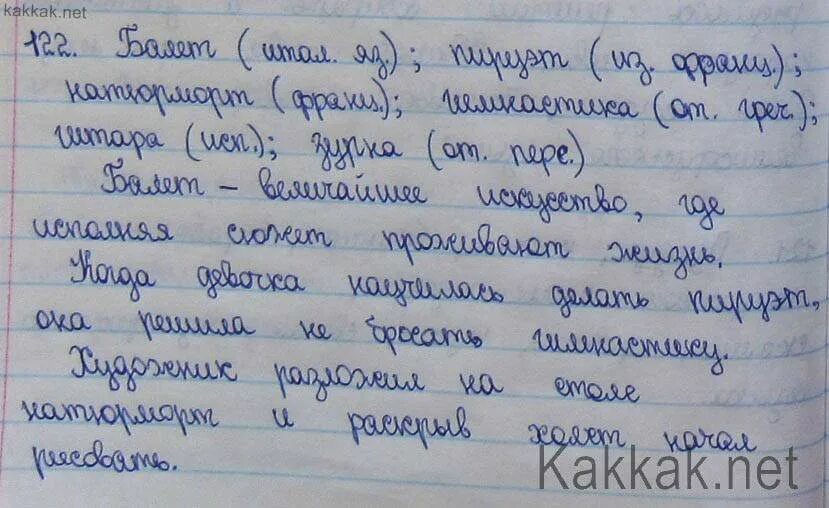 kakkak.net
122. Балет (итал. яз.); пируэт (из. франц.);
натюрморт (франц.); гимнастика (от. греч.);
гитара (исп.); зурна (от. перс.)
Балет – величайшее искусство, где
исполняя сюжет проживают жизнь.
Когда девочка научилась делать пируэт,
она решила не бросать гимнастику.
Художник разложил на столе
натюрморт и раскрыв холст начал
рисовать.
Kakkak.net